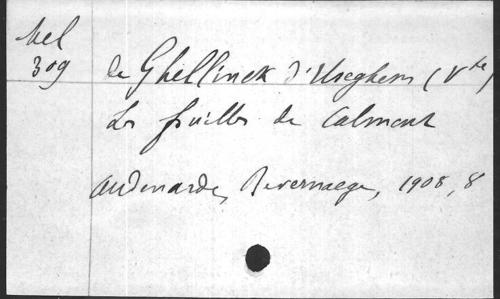 Mel
309
de Ghellinck d'Elseghem (Vte)
Les fouilles de Calmont
Audenarde, Bevernaege, 1908, 8